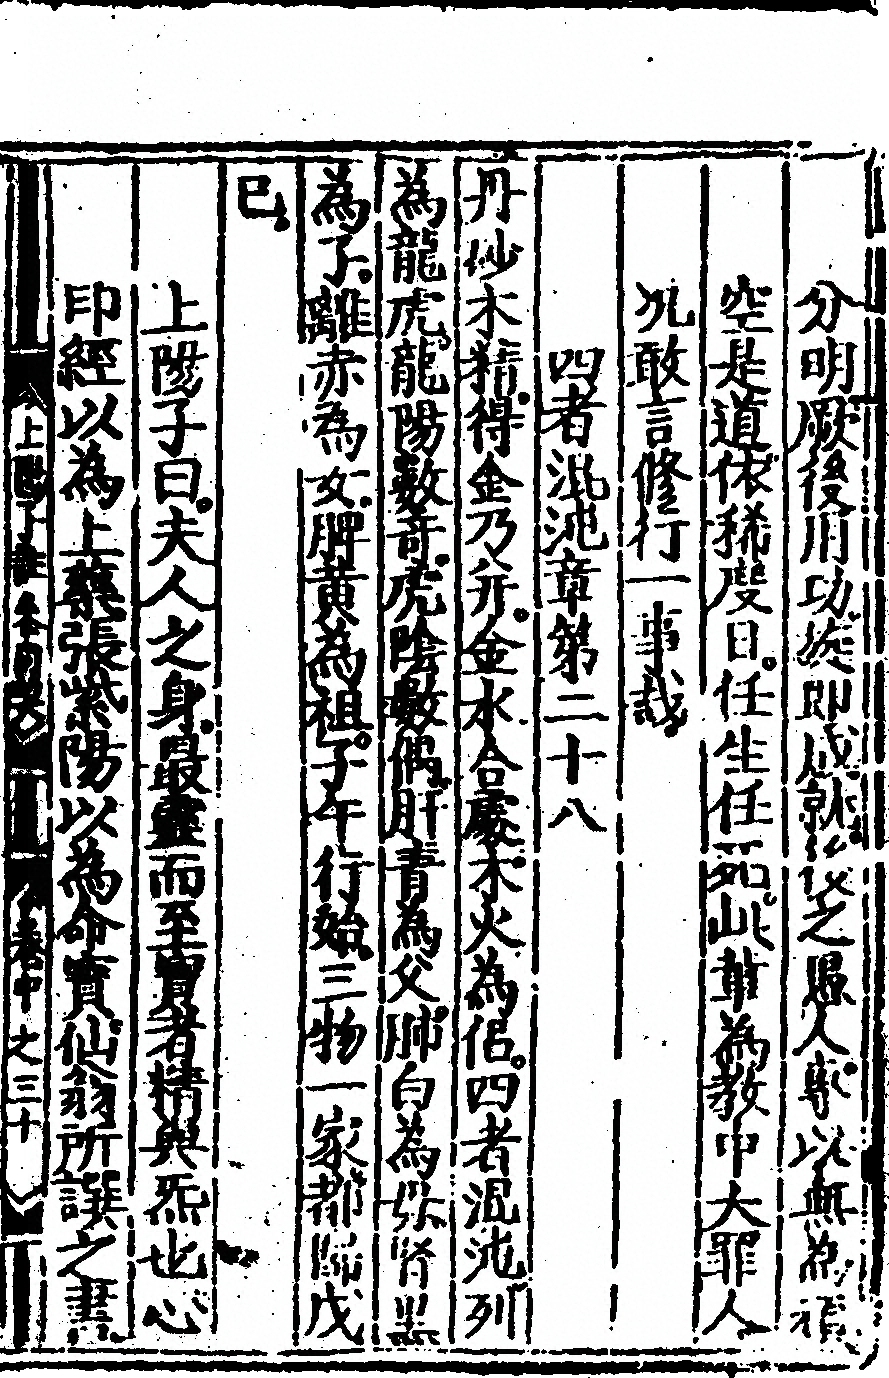 分明厥後用功旋即成就後之愚人專以無為
空是道依稀度日任生任死此輩為教中大罪人
况敢言修行一事哉
四者混沌章第二十八
丹妙木精得金乃并金水合處木火為侶四者混沌列
為龍虎龍陽數竒虎陰數偶肝青為父肺白為母腎黑
為子離赤為女脾黄為祖子午行始三物一家都歸戊
巳
上陽子曰夫人之身最靈而至寶者精與炁也心
印經以為上藥張紫陽以為命寶仙翁所譔之書
上陽子註參同契 卷中 之三十